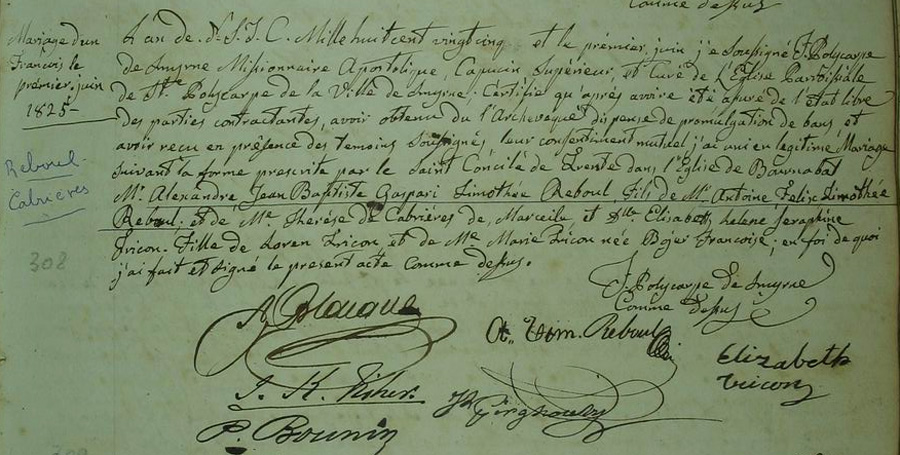 Comme dessus
Mariage d'un
Francois le
prémier, juin
1825-
Reboul-
Cabrières
308
L'an de N. S. J. C. Mille huit cent vingt cinq et le prémier, juin je soussigné F. Polycarpe
de Smyrne Missionnaire Apostolique, Capucin Supérieur, et Curé de L'Eglise Paroissiale
de St. Polycarpe de la Ville de Smyrne; Certifié qu'après avoire été assuré de l'Etat libre
des parties contractantes, avoir obtenu de l'Archeveque dispense de promulgation de bans, et
avoir recu en présance des Temoins Soussignés leur consentiment mutuel, j'ai uni en legitime Mariage
Suivant la forme prescrite par le Saint Concile de Trente dans l'Eglise de Bournabat
Mr. Alexandre Jean Baptiste Gaspari Timothée Reboul, Fils de Mr. Antoine Felix Timothée
Reboul; et de Me. Thérése de Cabriéres de Marceile et Dlle. Elisabeth, helene Seraphine
Tricon. Fille de Loren Tricon et de Me Marie Tricon née Bojer Francoise; en foi de quoi
j'ai fait et signé le present acte Comme dessus.
F. Polycarpe de Smyrne
Comme dessus
A. Tim. Reboul
Elizabeth
Tricon
P. Bounin